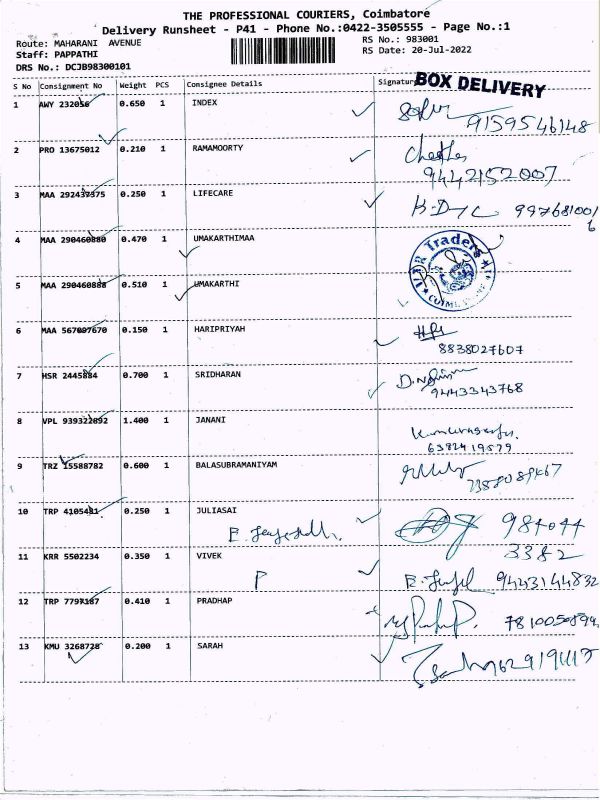 THE PROFESSIONAL COURIERS, Coimbatore
Delivery Runsheet - P41 - Phone No.:0422-3505555 - Page No.:1
Route: MAHARANI AVENUE
Staff: PAPPATHI
DRS No.: DCJB98300101
RS No.: 983001
RS Date: 20-Jul-2022
S No Consignment No Weight PCS Consignee Details Signature
BOX DELIVERY
1 AWY 232056 0.650 1 INDEX
9159546148
2 PRO 13675012 0.210 1 RAMAMOORTY
9442152007
3 MAA 292437375 0.250 1 LIFECARE
4 MAA 290460880 0.470 1 UMAKARTHIMAA
Traders
5 MAA 290460888 0.510 1 UMAKARTHI
6 MAA 567087670 0.150 1 HARIPRIYAH
8838027607
7 HSR 2445884 0.700 1 SRIDHARAN
9443343768
8 VPL 939322892 1.400 1 JANANI
6382419579
9 TRZ 15588782 0.600 1 BALASUBRAMANIYAM
10 TRP 4105481 0.250 1 JULIASAI
984044
3382
11 KRR 5502234 0.350 1 VIVEK
P 9443144832
12 TRP 7797187 0.410 1 PRADHAP
13 KMU 3268728 0.200 1 SARAH